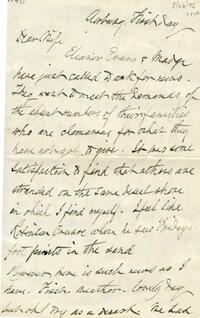 Asbury, First Day
Dear Wife
Eleanor Evans & Madge
have just called to ask for news.
They want to meet the demands of
the absent members of their families
who are clamorous for what they
have not got to give. It was some
satisfaction to find that others are
stranded on the same desert shore
in which I find myself. I feel like
Robinson Crusoe when he saw Friday's
foot prints in the sand
However here is such news as I
have. First weather. lovely day
but oh! dry as a desert. We had